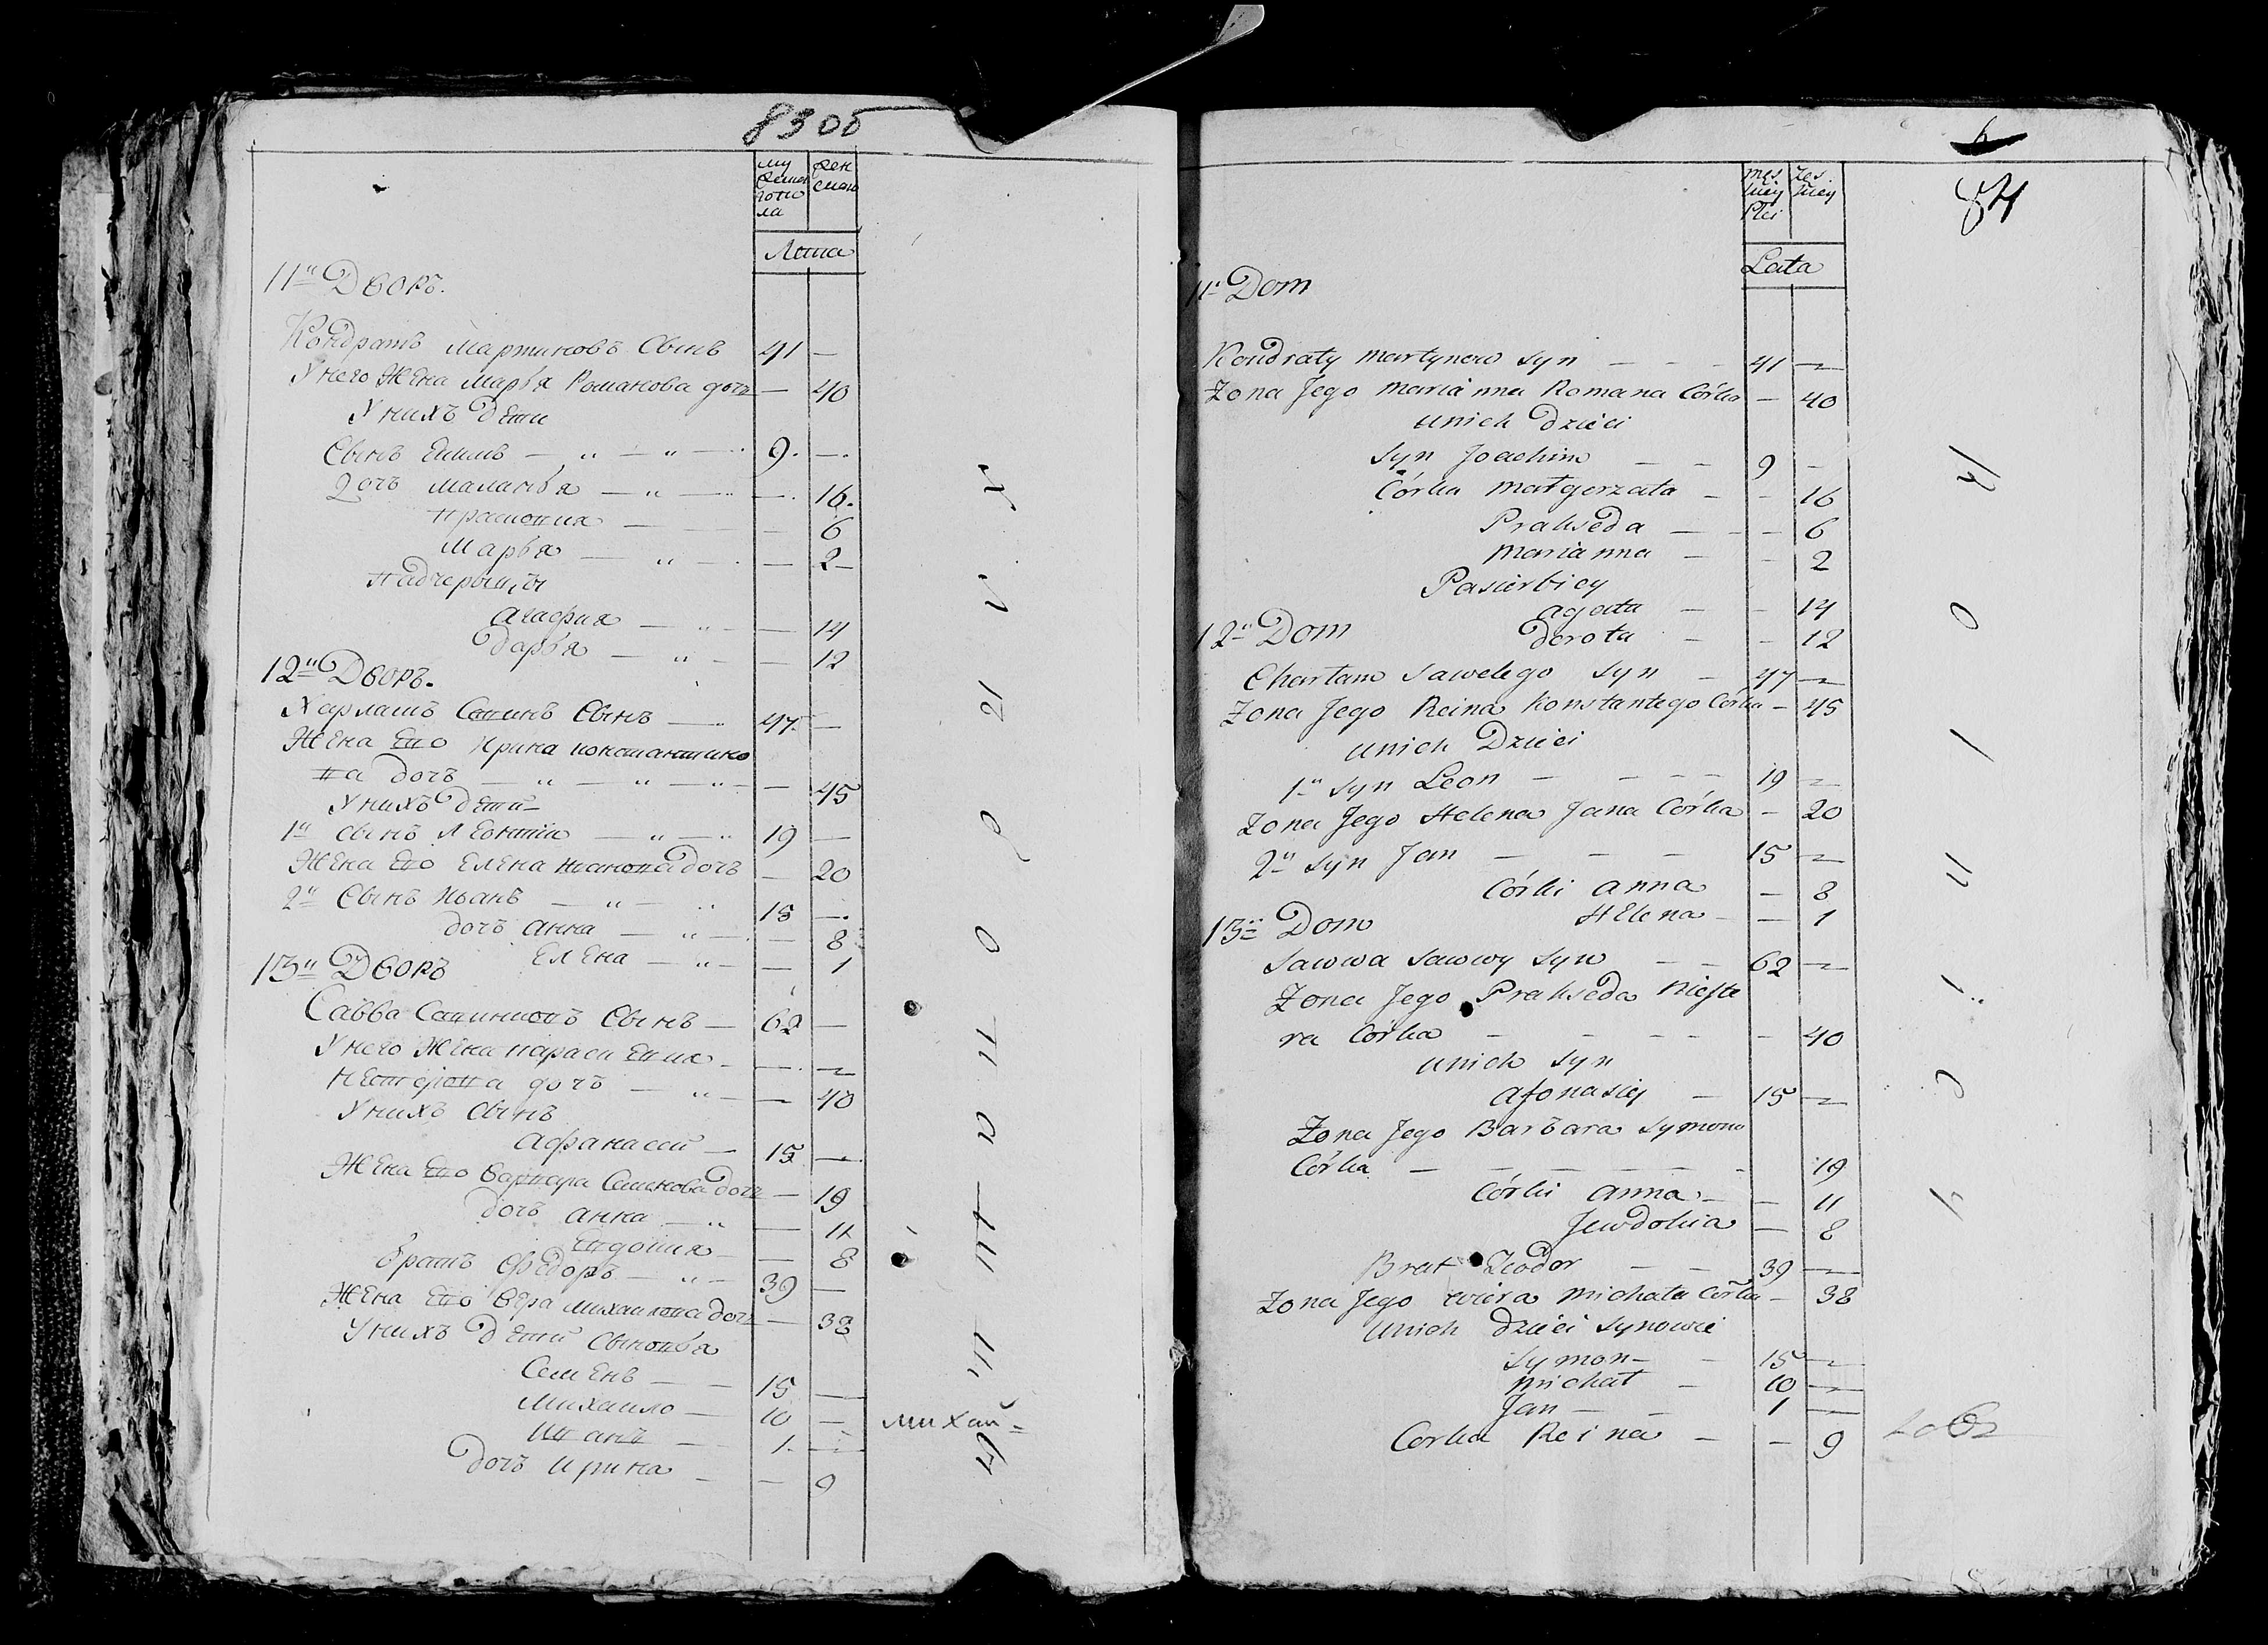 83 об
му
жеска
го по
ла
жен
скаго
Лета
11ᵃ Дворъ.
Кондратъ Мартиновъ Сынъ 41 —
У него Жена Марья Романова дочь — 40
У нихъ Дети
Сынъ Еким — „ — „ — 9. —
Дочь Маланья — „ — — 16.
Прасковия — — 6
Марья — „ — — 2
Падчерицы
Агафия — „ — 14
Дарья — „ — — 12
12ᵃ Дворъ.
Харлашъ Савинъ Сынъ — 47 —
Жена Его Ирина константино
ва дочь — „ — „ — „ — — 45
У нихъ дети
1ᵃ сынъ Леонтiи — „ — „ 19 —
Жена Его Елена Иванова дочь — 20
2ᵃ Сынъ Иванъ — „ — „ 15 —
дочь Анна — „ — — 8
Елена — „ — — 1
13ᵃ Дворъ
Савва Савиновъ Сынъ — 62 —
У него Жена парасковия — —
Нестерова дочь — „ — — 40
У нихъ Сынъ
Афанасей — 15 —
Жена Его Варвара Семенова дочь — 19
дочь Анна — „ — 11
Евдокия — — 8
братъ Федоръ — „ — 39 —
Жена Его Вера Михаилова дочь — 38
У нихъ Дети Сыновья
Семенъ — — 15 —
Михаило — 10 —
Иванъ — 1. —
дочь Ирина — — 9
михай=
6
84
męs
kiey
Płci
żes
kiey
Lata
11ᵃ Dom
Kondraty Martynow syn — — 41 —
Żona Jego Marianna Romana Córka — 40
unich dzieci
syn Joachim — — 9 —
Córka Małgorzata — — 16
Prakseda — — 6
Marianna — — 2
Pasierbicy
agata — — 14
12ᵃ Dom dorota — — 12
Charłam Sawelego syn — 47 —
Żona Jego Reina Konstantego Córka — 45
unich Dzieci
1ᵃ syn Leon — — — 19 —
Żona Jego Helena Jana Córka — 20
2ᵃ syn Jan — — — 15 —
Córki anna — 8
13ᵃ Dom HElena — — 1
Sawwa Sawwy syn — — 62 —
Żona Jego Prakseda Nieste
ra Córka — — — — — 40
unich syn
afonasiey — 15 —
Żona Jego Barbara Symona
Córka — — — — — 19
Córki anna — — 11
Jewdokia — 8
Brat Teodor — — 39 —
Żona Jego wiera Michała Córka — 38
unich dzieci synowie
symon — — 15 —
Michał — 10 —
Jan — — 1 —
Corka Reina — — 9